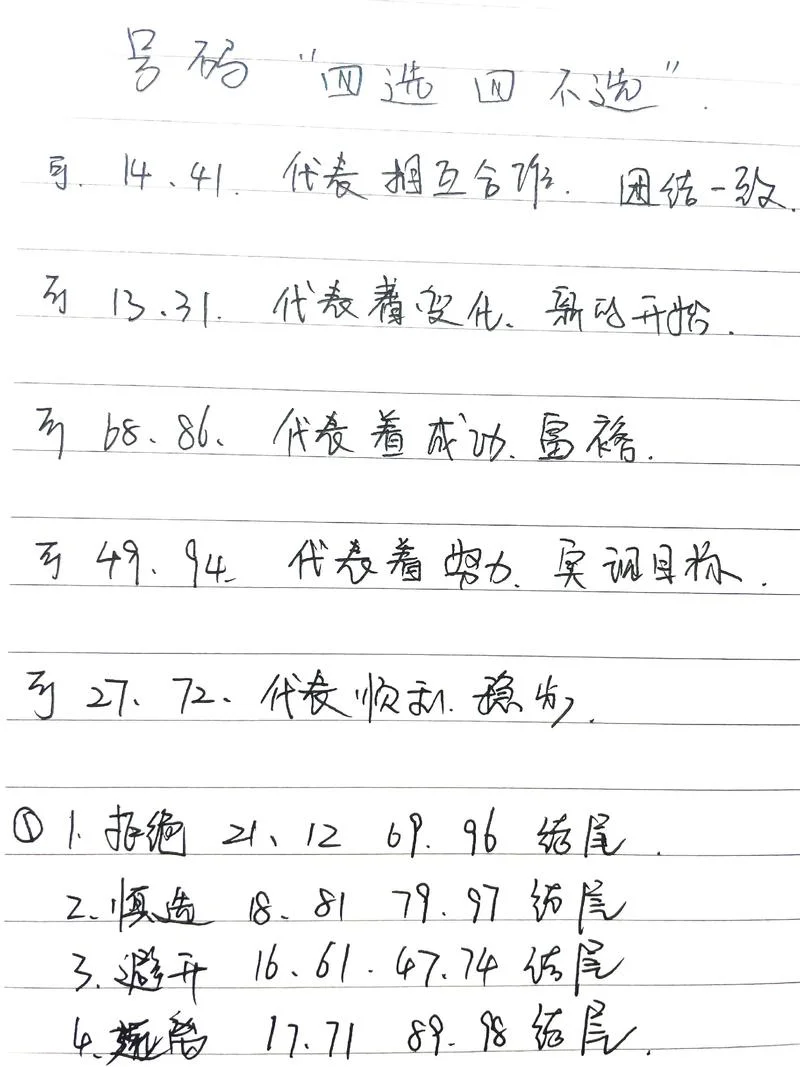 号码 “四选四不选”.
可. 14、41. 代表相互合作. 团结一致.
可 13.31. 代表着变化、新的开始.
可 68、86、代表着成功、富裕.
可 49、94、代表着努力、实现目标.
可 27、72、代表顺利、稳步.
① 1. 拒绝 21、12 69. 96 结尾.
2、慎选 18、81 79、97 结尾
3、避开 16、61、47、74 结尾
4、远离 17、71 89、98 结尾.